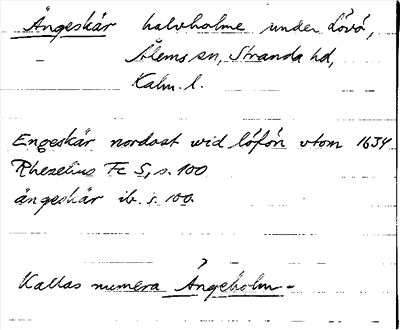 Ängeskär halvholme under Lövö,
Ålems sn, Stranda hd,
Kalm. l.
Engeskär nordost wid löfön utom 1634
Rhezelius Fc 5, s. 100
ängeskär ib. s. 100.
Kallas numera Ängeholm.